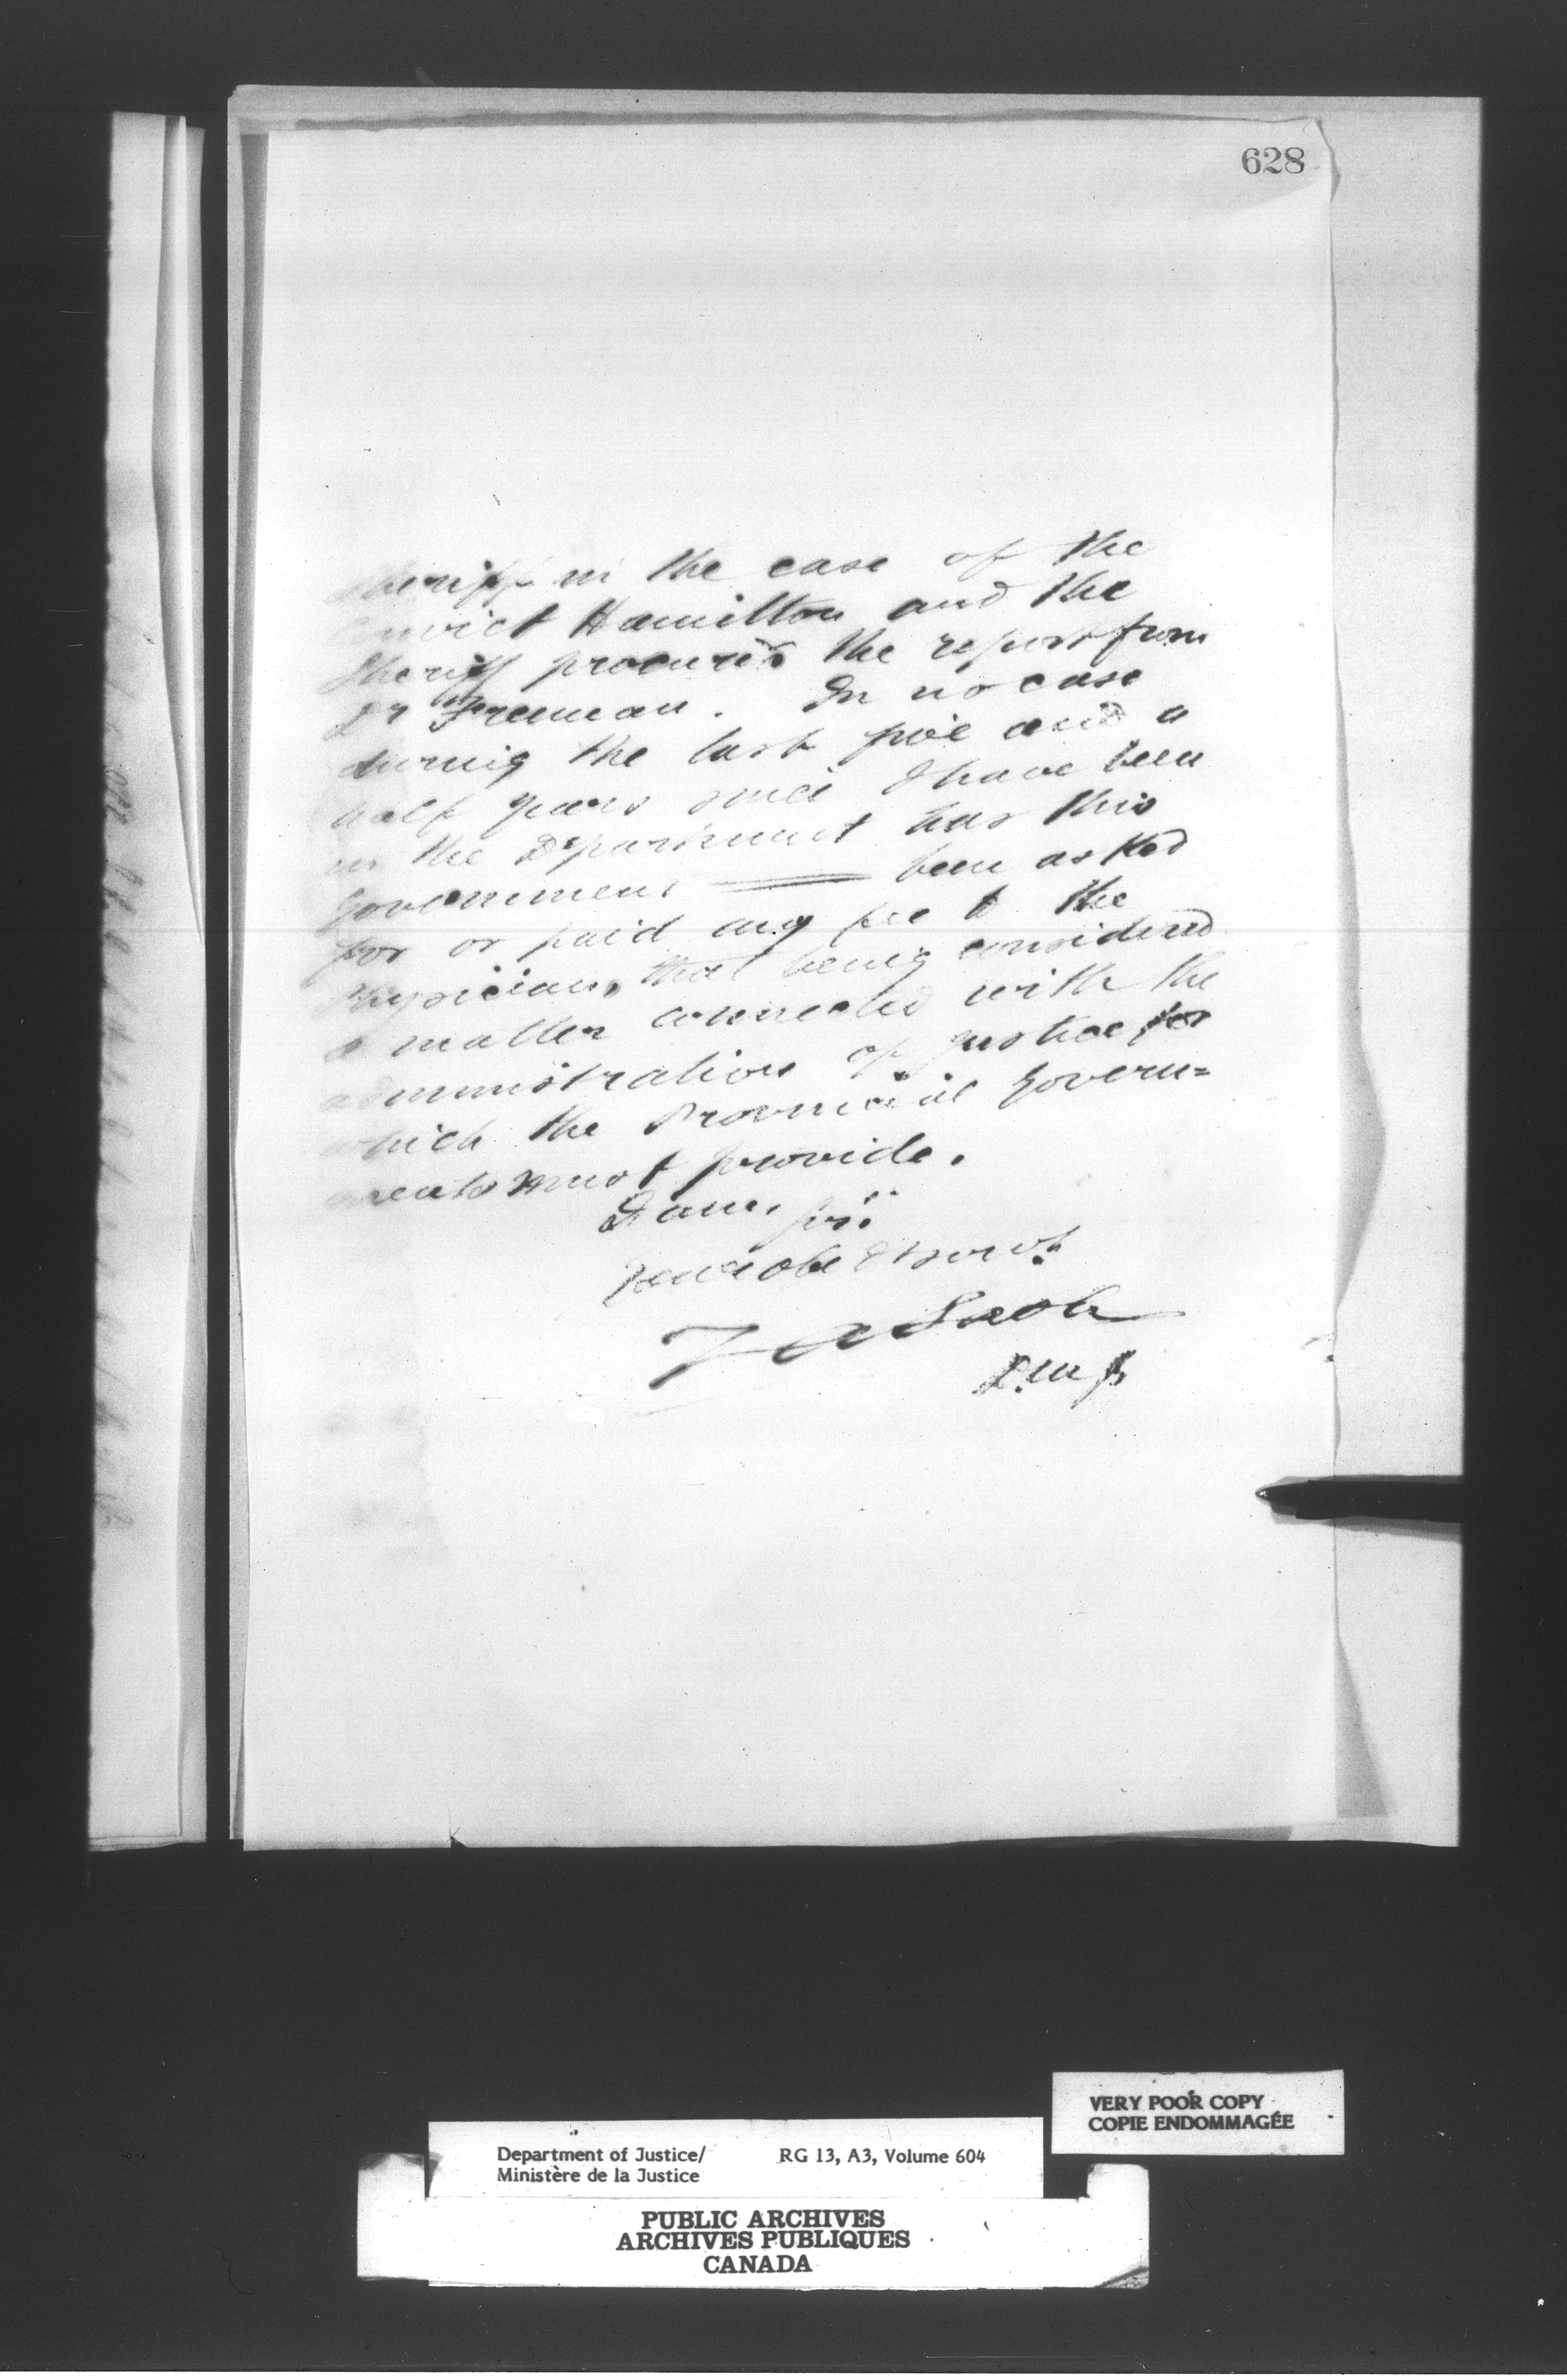 628
Sheriff in the case of the
Convict Hamilton and the
Sheriff procured the report from
Dr Freeman. In no case
during the last five and a
half years since I have been
in the Department has this
Government been asked
for or paid any fee to the
Physician, that being considered
a matter connected with the
administration of justice for
which the Provincial Govern=
ments must provide.
I am, Sir
Your obedt servt
Z A Lash
D.M.J.
VERY POOR COPY
COPIE ENDOMMAGÉE
Department of Justice/ RG 13, A3, Volume 604
Ministère de la Justice
PUBLIC ARCHIVES
ARCHIVES PUBLIQUES
CANADA